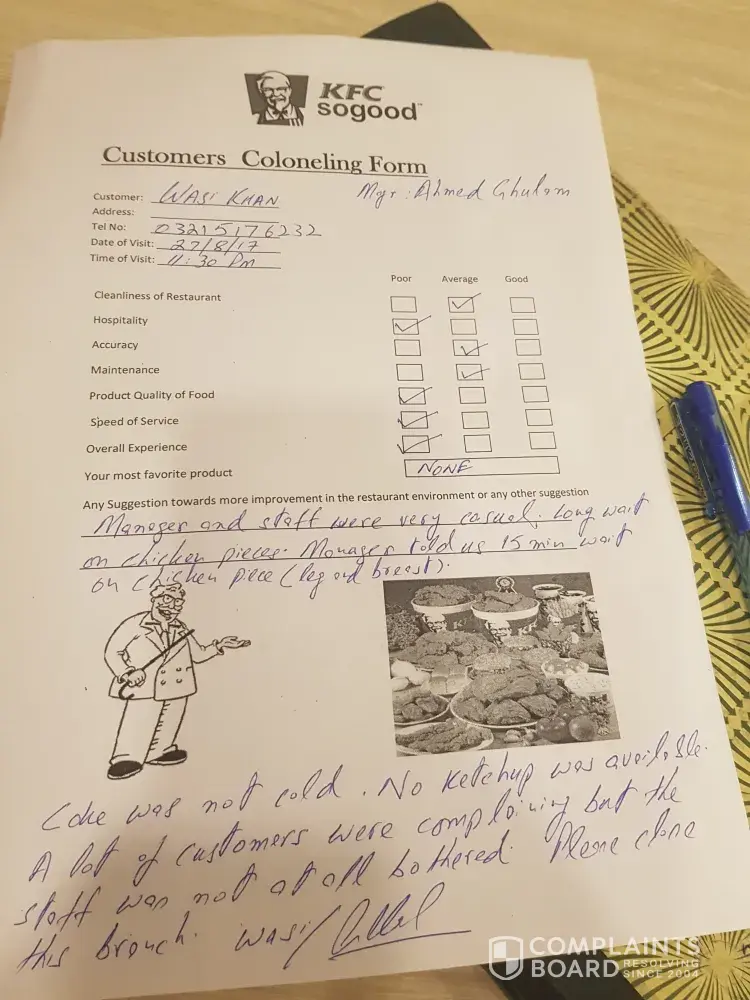 KFC
sogood™
Customers Coloneling Form
Mgr: Ahmed Ghulam
Customer: WASI KHAN
Address:
Tel No: 03215176232
Date of Visit: 27/8/17
Time of Visit: 11:30 Pm
Poor Average Good
Cleanliness of Restaurant
Hospitality
Accuracy
Maintenance
Product Quality of Food
Speed of Service
Overall Experience
Your most favorite product NONE
Any Suggestion towards more improvement in the restaurant environment or any other suggestion
Manager and staff were very casual. Long wait
on chicken pieces. Manager told us 15 min wait
on chicken piece (leg and breast).
KFC KFC
Coke was not cold. No ketchup was available.
A lot of customers were complaining but the
staff was not at all bothered. Please close
this branch. Wasi/
COMPLAINTS
BOARD RESOLVING
SINCE 2004